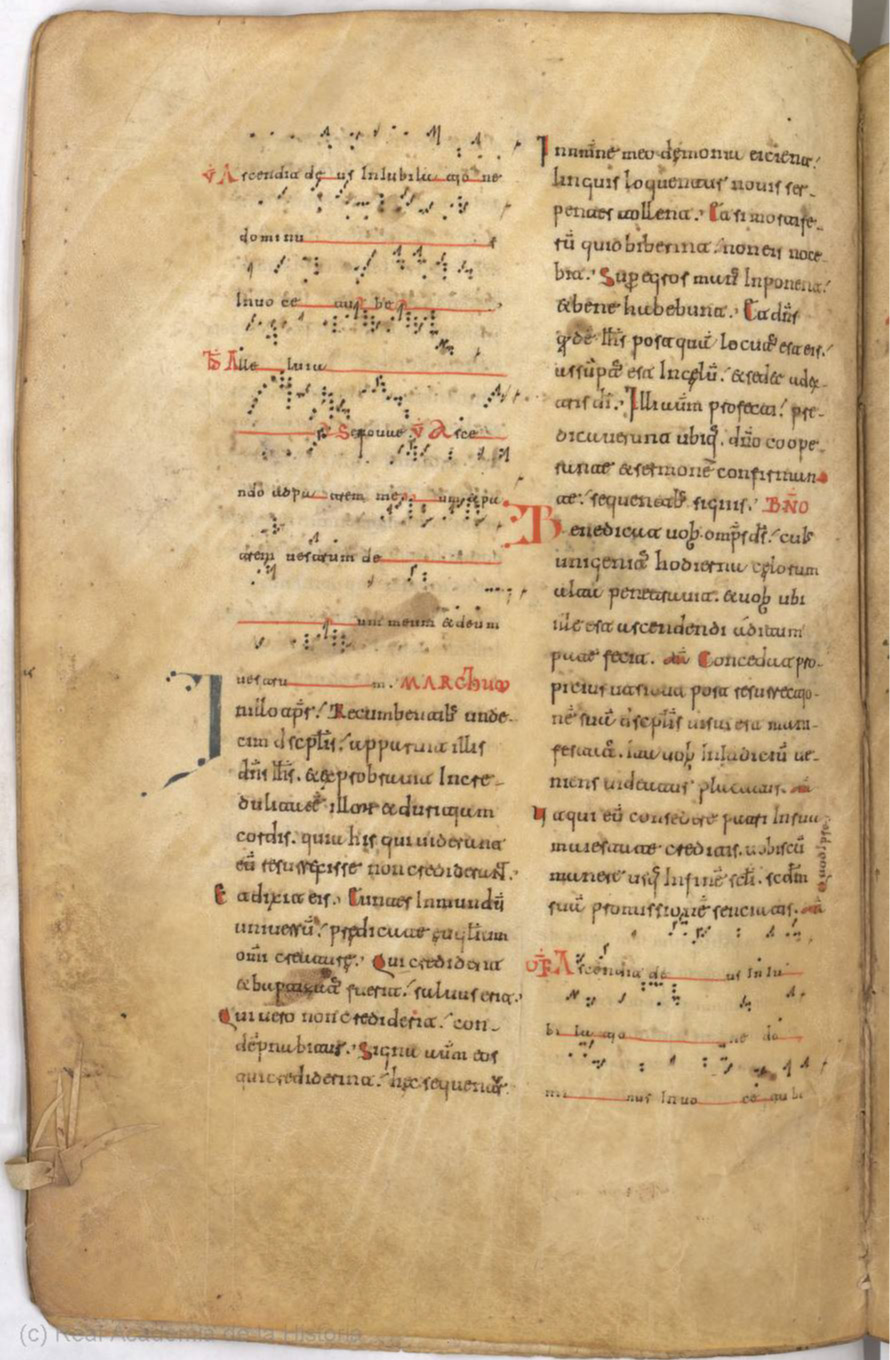 V Ascendit deus In Iubilatione
dominus
In uoce tube
V Alleluia
Sequitur V Asce
ndo ad patrem meum et pa
trem uestrum de
um meum et deum
uestrum. MARCHUM
In illo tempore. Recumbentibus unde
cim discipulis. apparuit illis
dns ihs. et exprobrauit Incre
dulitatem illorum et duritiam
cordis. quia his qui uiderant
eum resurrexisse non crediderunt.
Et dixit eis. Euntes In mundum
uniuersum. predicate euangelium
omni creature. Qui crediderit
et baptizatus fuerit. saluus erit.
Qui uero non crediderit. con
dempnabitur. Signa autem eos
qui crediderint. hec sequentur
In nomine meo demonia eicient.
linguis loquentur nouis ser
pentes tollent. Et si mortife
rum quid biberint. non eis noce
bit. Super egros manus Inponent.
et bene habebunt. Et dns
quidem ihs postquam locutus est eis.
assumptus est In celum. et sedet a dex
tris di. Illi autem profecti. pre
dicauerunt ubique. dno coope
rante et sermonem confirman
te. sequentibus signis. BNO
Benedicat uobis omps ds. cuius
unigenitus hodierna celorum
alta penetrauit. et uobis ubi
ille est ascendendi aditum
patefecit. am Concedat pro
pitius ut sicut post resurrectio
nem suam discipulis uisus est mani
festatus. ita uobis In Iudicium ue
niens uideatur placatus. am
Ut qui eum consedere patri In sua
maiestate creditis. uobiscum
manere usque In finem seculi. scdm
suam promissionem sentiatis. am
OF Ascendit deus In Iu
bilatione do
minus In uoce tube